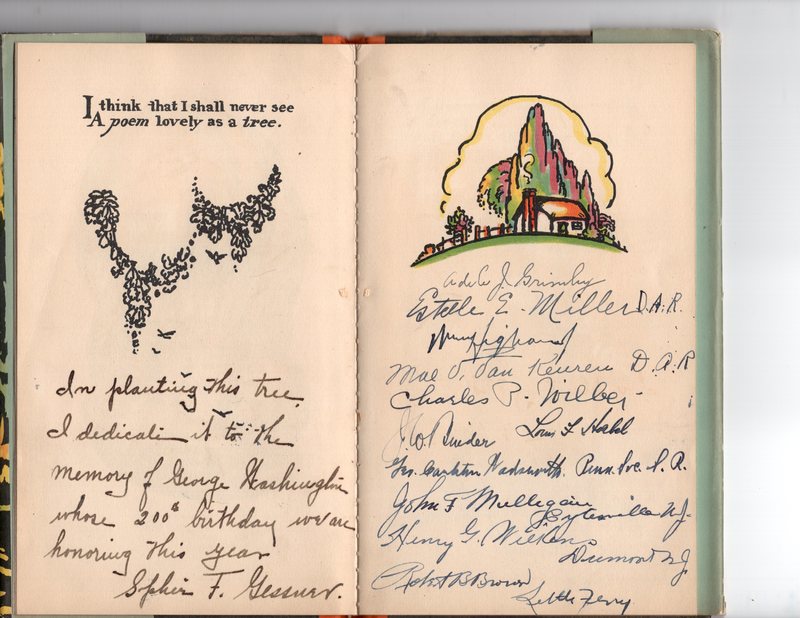 I think that I shall never see
A poem lovely as a tree.
In planting this tree
I dedicate it to the
memory of George Washington
whose 200th birthday we are
honoring this year
F. Gessner.
J. Grimby
Estelle E. Miller D.A.R.
Mae V. Van Keuren D.A.R
Charles P. Wilber
J. W. Binder
Louis F
Geo. Carleton Wadsworth. Penn. Soc. S. R.
John F Mulligan
Coytesville N.J.
Henry G. Wilkens
Dumont N J
Robt B Brown
Little Ferry